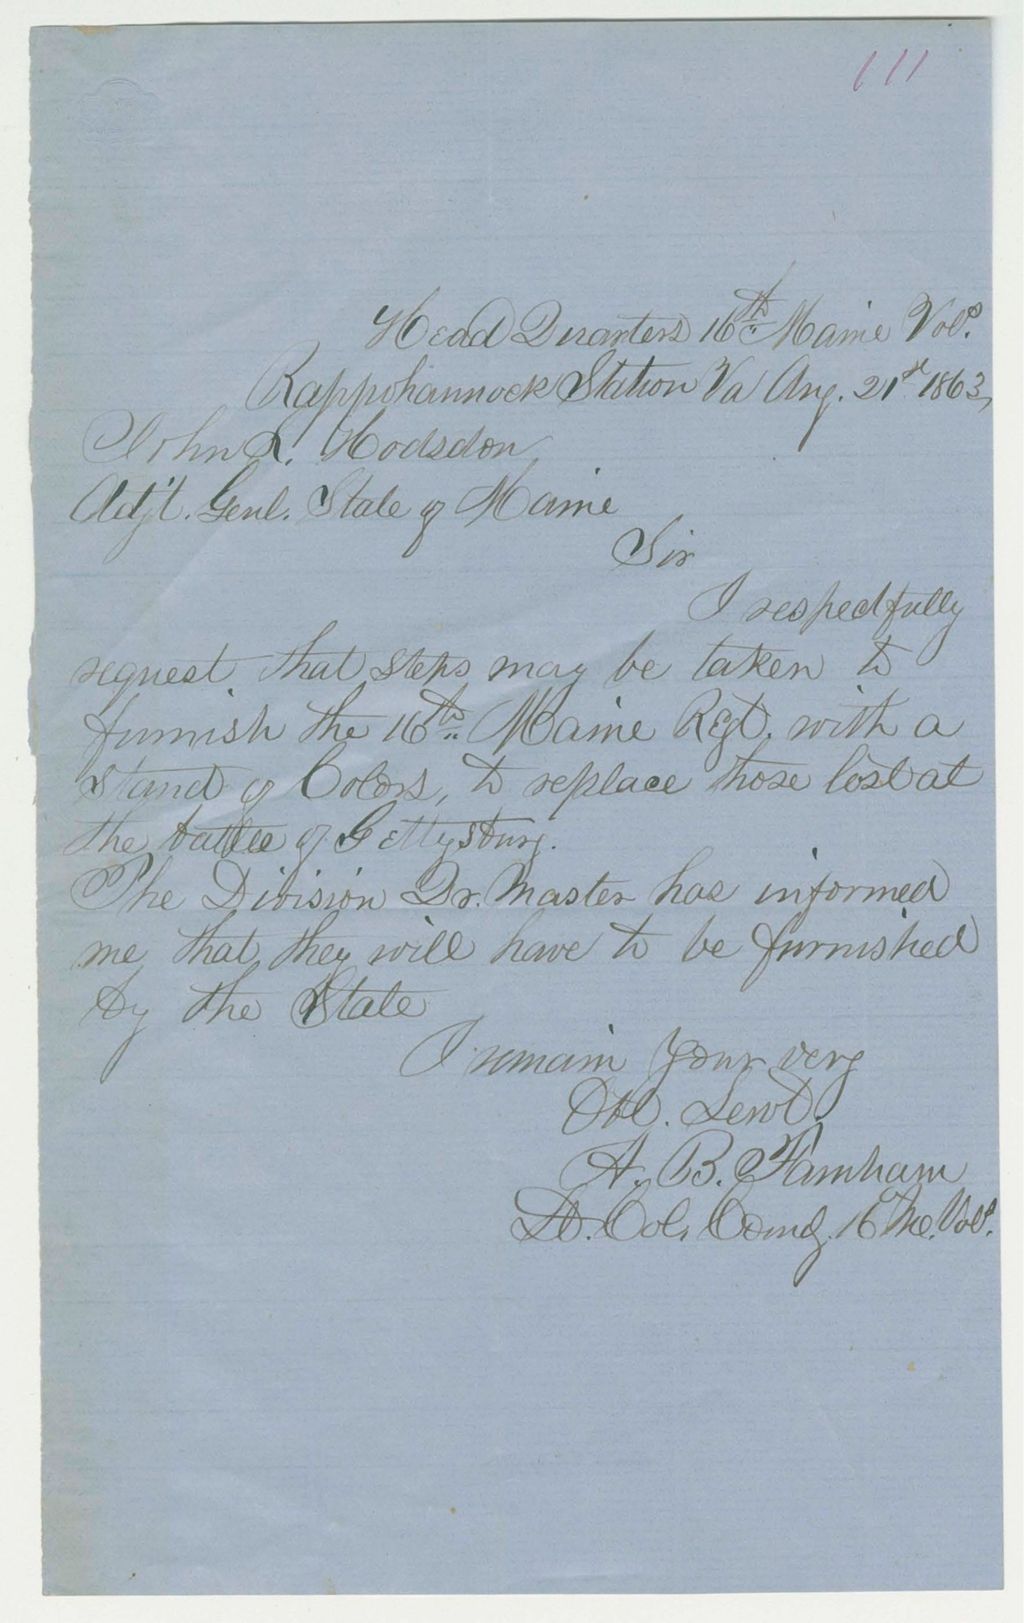 111
Head Quarters 16th Maine Vols.
Rappohannock Station Va Aug. 21st 1863,
John L. Hodsdon
Adj't. Genl. State of Maine
Sir
I respectfully
request that steps may be taken to
furnish the 16th Maine Regt. with a
Stand of Colors, to replace those lost at
the battle of Gettysburg.
The Division Qr. Master has informed
me that they will have to be furnished
by the State
I remain Your very
Obt. Servt.
A. B. Farnham
Lt. Col. Comdg. 16 Me. Vols.